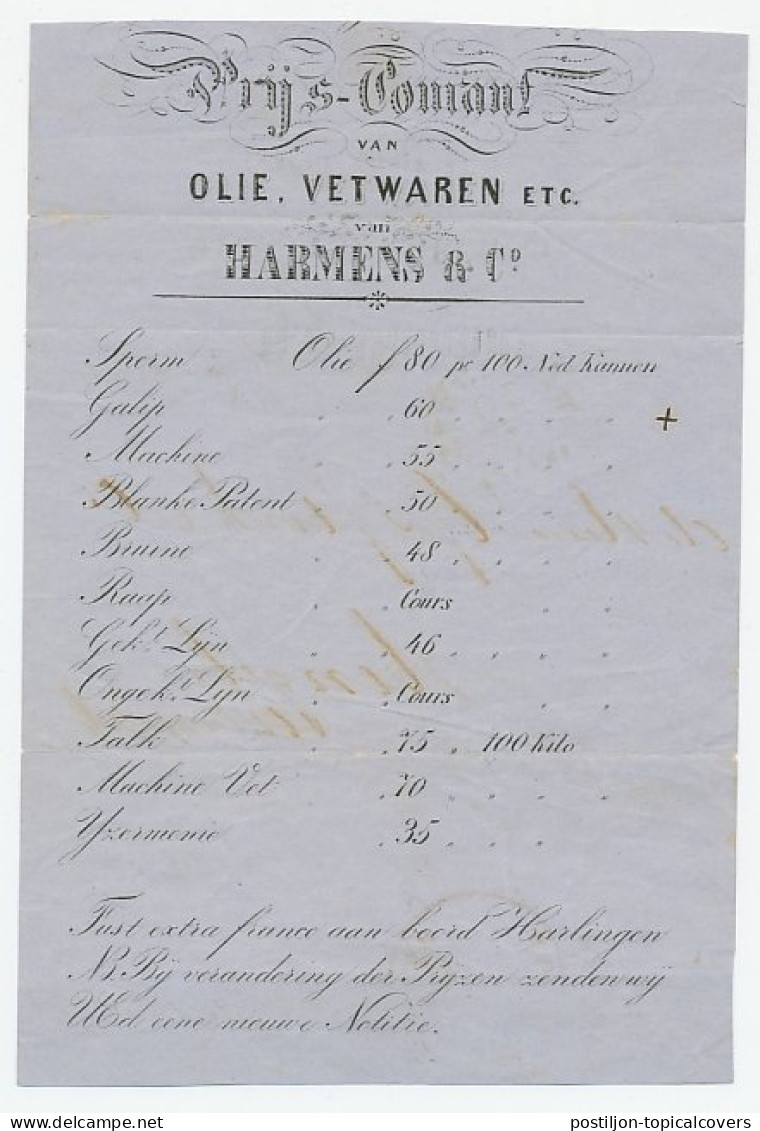 Prijs-Courant
VAN
OLIE, VETWAREN ETC.
van
HARMENS & Co
Sperm Olie f 80 pr 100 Ned Kannen
Galip „ „ 60 „ „ „ „ +
Machine „ „ 55 „ „ „ „
Blanke Patent „ „ 50 „ „ „ „
Bruine „ „ 48 „ „ „ „
Raap „ „ Cours „ „ „
Gekt. Lijn „ „ 46 „ „ „ „
Ongekt. Lijn „ „ Cours „ „
Talk „ „ 75 „ 100 Kilo
Machine Vet „ 70 „ „ „ „
Yzermenie „ 35 „ „ „
Fust extra franco aan boord Harlingen
NB. Bij verandering der Prijzen zenden wij
UEd eene nieuwe Notitie.
postiljon-topicalcovers / Delcampe.net